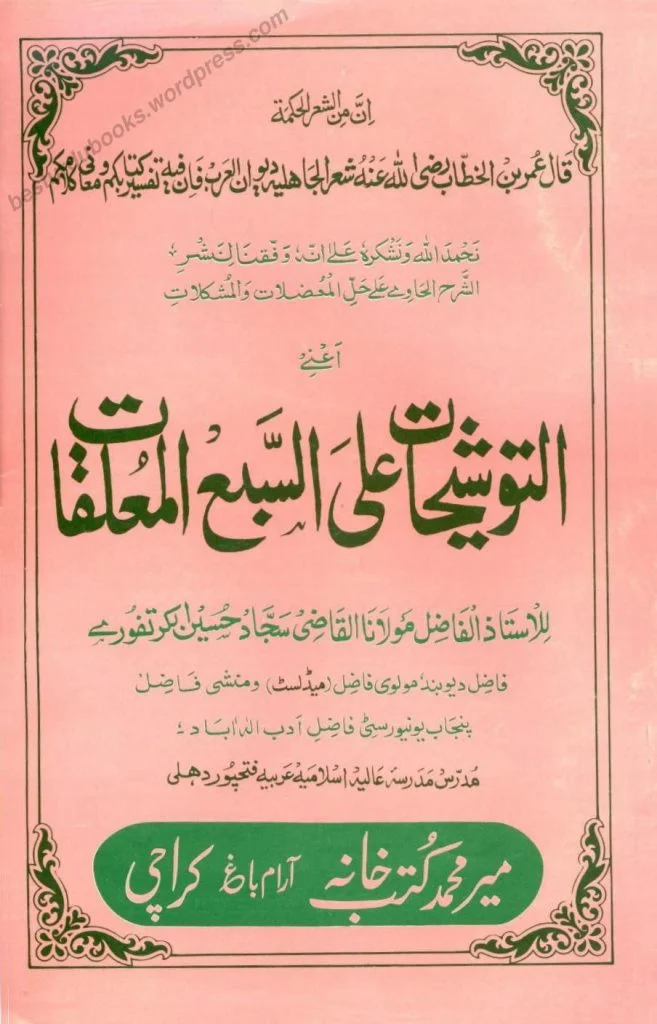 besturdubooks.wordpress.com
اِنَّ مِنَ الشعر الحكمة
قَالَ عُمر بن الخطّاب رضى اللهُ عَنْهُ شعر الجاهلية ديوان العرب فَاِن فيه تفسير كتابكم ومعانى كلامكم
نَحمدَ اللهَ وَنَشكرهُ عَلےٰ انّه وَفّقنا لِنَشْرِ
الشّرح الحاوِے عَلےٰ حَلِّ المُعضلات وَالمُشكلاتِ
اَعْنِےْ
التوشيحات عَلىَ السَّبع المُعلّقات
لِلاُستاذ الفَاضِل مَولانَا القَاضِىْ سَجَّاد حُسَين كرتفُورے
فاضِل ديوبند مولوى فاضِل (ميڈلسٹ) ومنشى فاضل
پنجاب يونيورسٹى فاضِل ادب الہٰ اباد
مُدرّس مَدرَسَه عَاليه اسلاميه عربيه فتحپور دهلى
مير محمد كُتب خانه آرام باغ كراچى